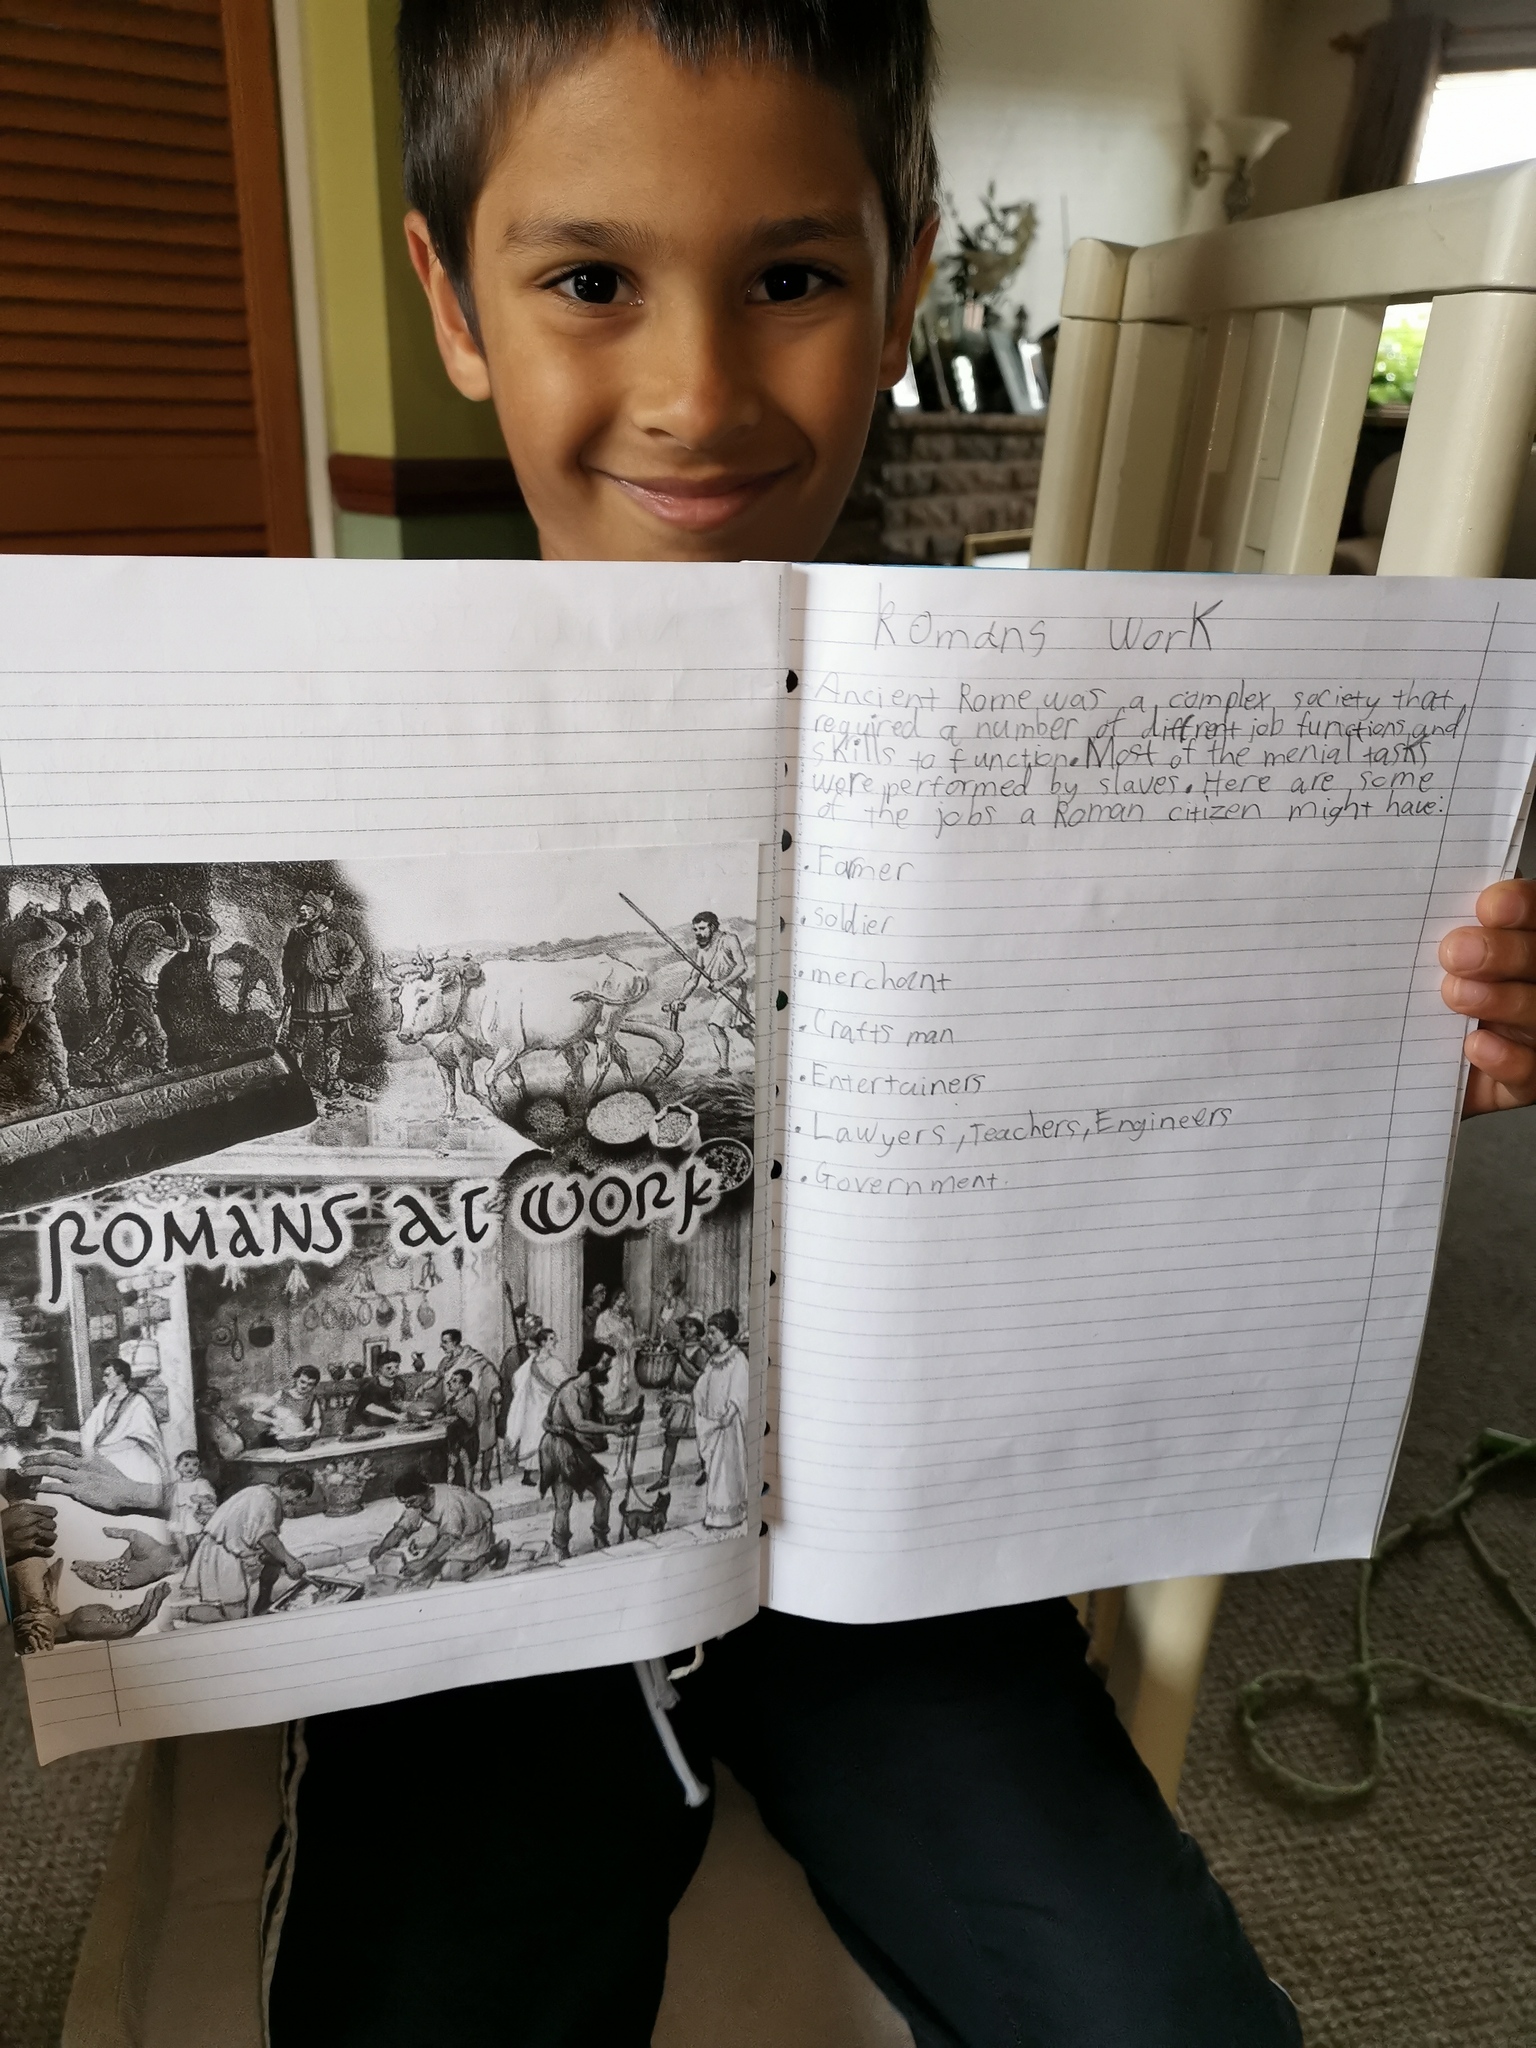 Romans Work
Ancient Rome was a complex society that
required a number of diffrent job functions and
skills to function. Most of the menial tasks
were performed by slaves. Here are some
of the jobs a Roman citizen might have:
• Farmer
• soldier
• merchant
• Crafts man
• Entertainers
• Lawyers, Teachers, Engineers
• Government.
ROMANS AT WORK